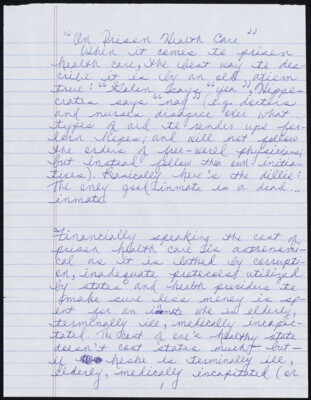 "On Prison Health Care"
When it comes to prison
health care, the best way to des-
cribe it is by an old atism
true: "Galen says "yea" Hippo-
crates says "nay" (e.g. doctors
and nurses disagree over what
types of aid to render ups for-
lorn hopes, and will not follow
the orders of free-world physicians,
but instead follow their own initia-
tives). Basically here's the dillie:
The only good inmate is a dead...
inmate.
Financially speaking the cost of
prison health care is astronomi-
cal as it is
by corrupti-
on, inadequate protocols utilized
by states and health providers to
make sure less money is sp-
ent for an inmate who is elderly,
terminally ill, medically incapac-
itated. The cost of one's healthy state
doesn't cost states much - but -
if he she is terminally ill,
elderly, medically incapitated (or
1